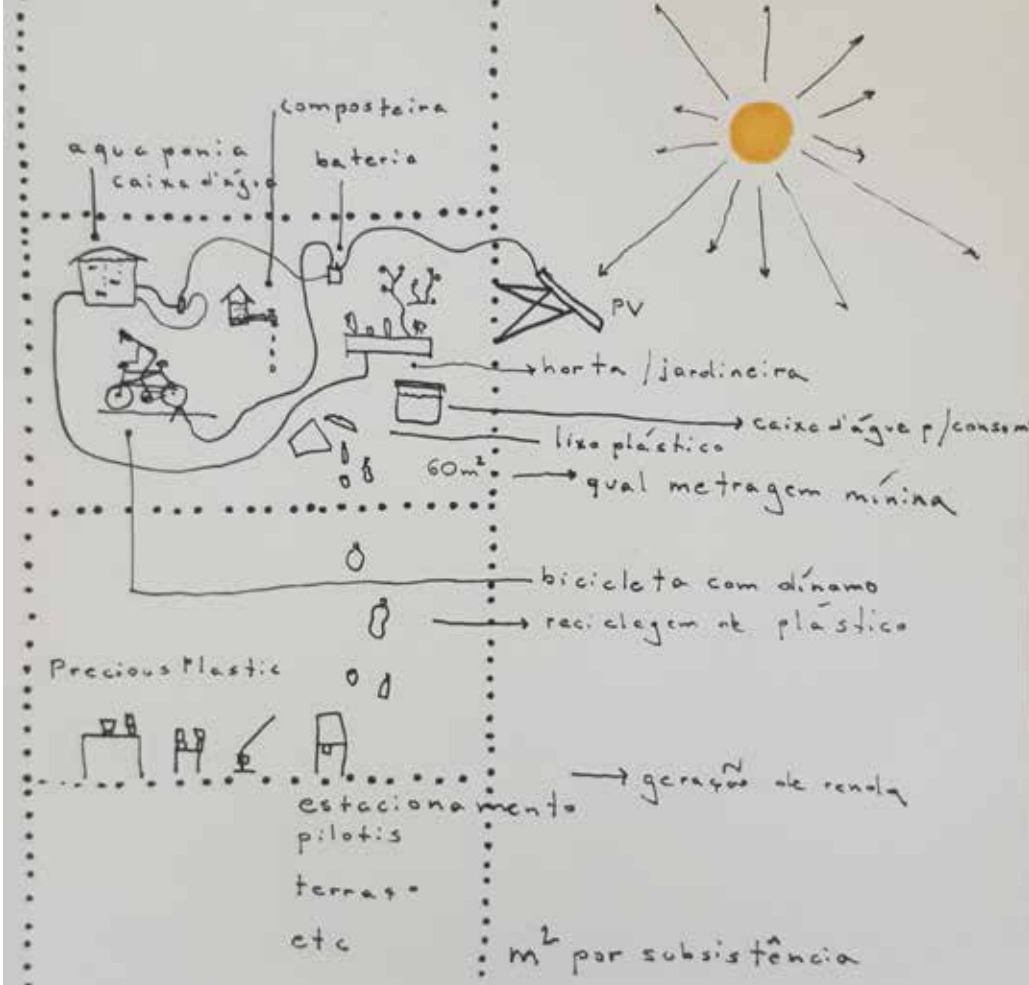 composteira
aquaponia
caixa d'água
bateria
PV
horta / jardineira
caixa d'água p/consum
lixo plástico
60m²
qual metragem mínina
bicicleta com dínamo
reciclagem de plástico
Precious Plastic
geração de renda
estacionamento
pilotis
terraço
etc
m² por subsistência